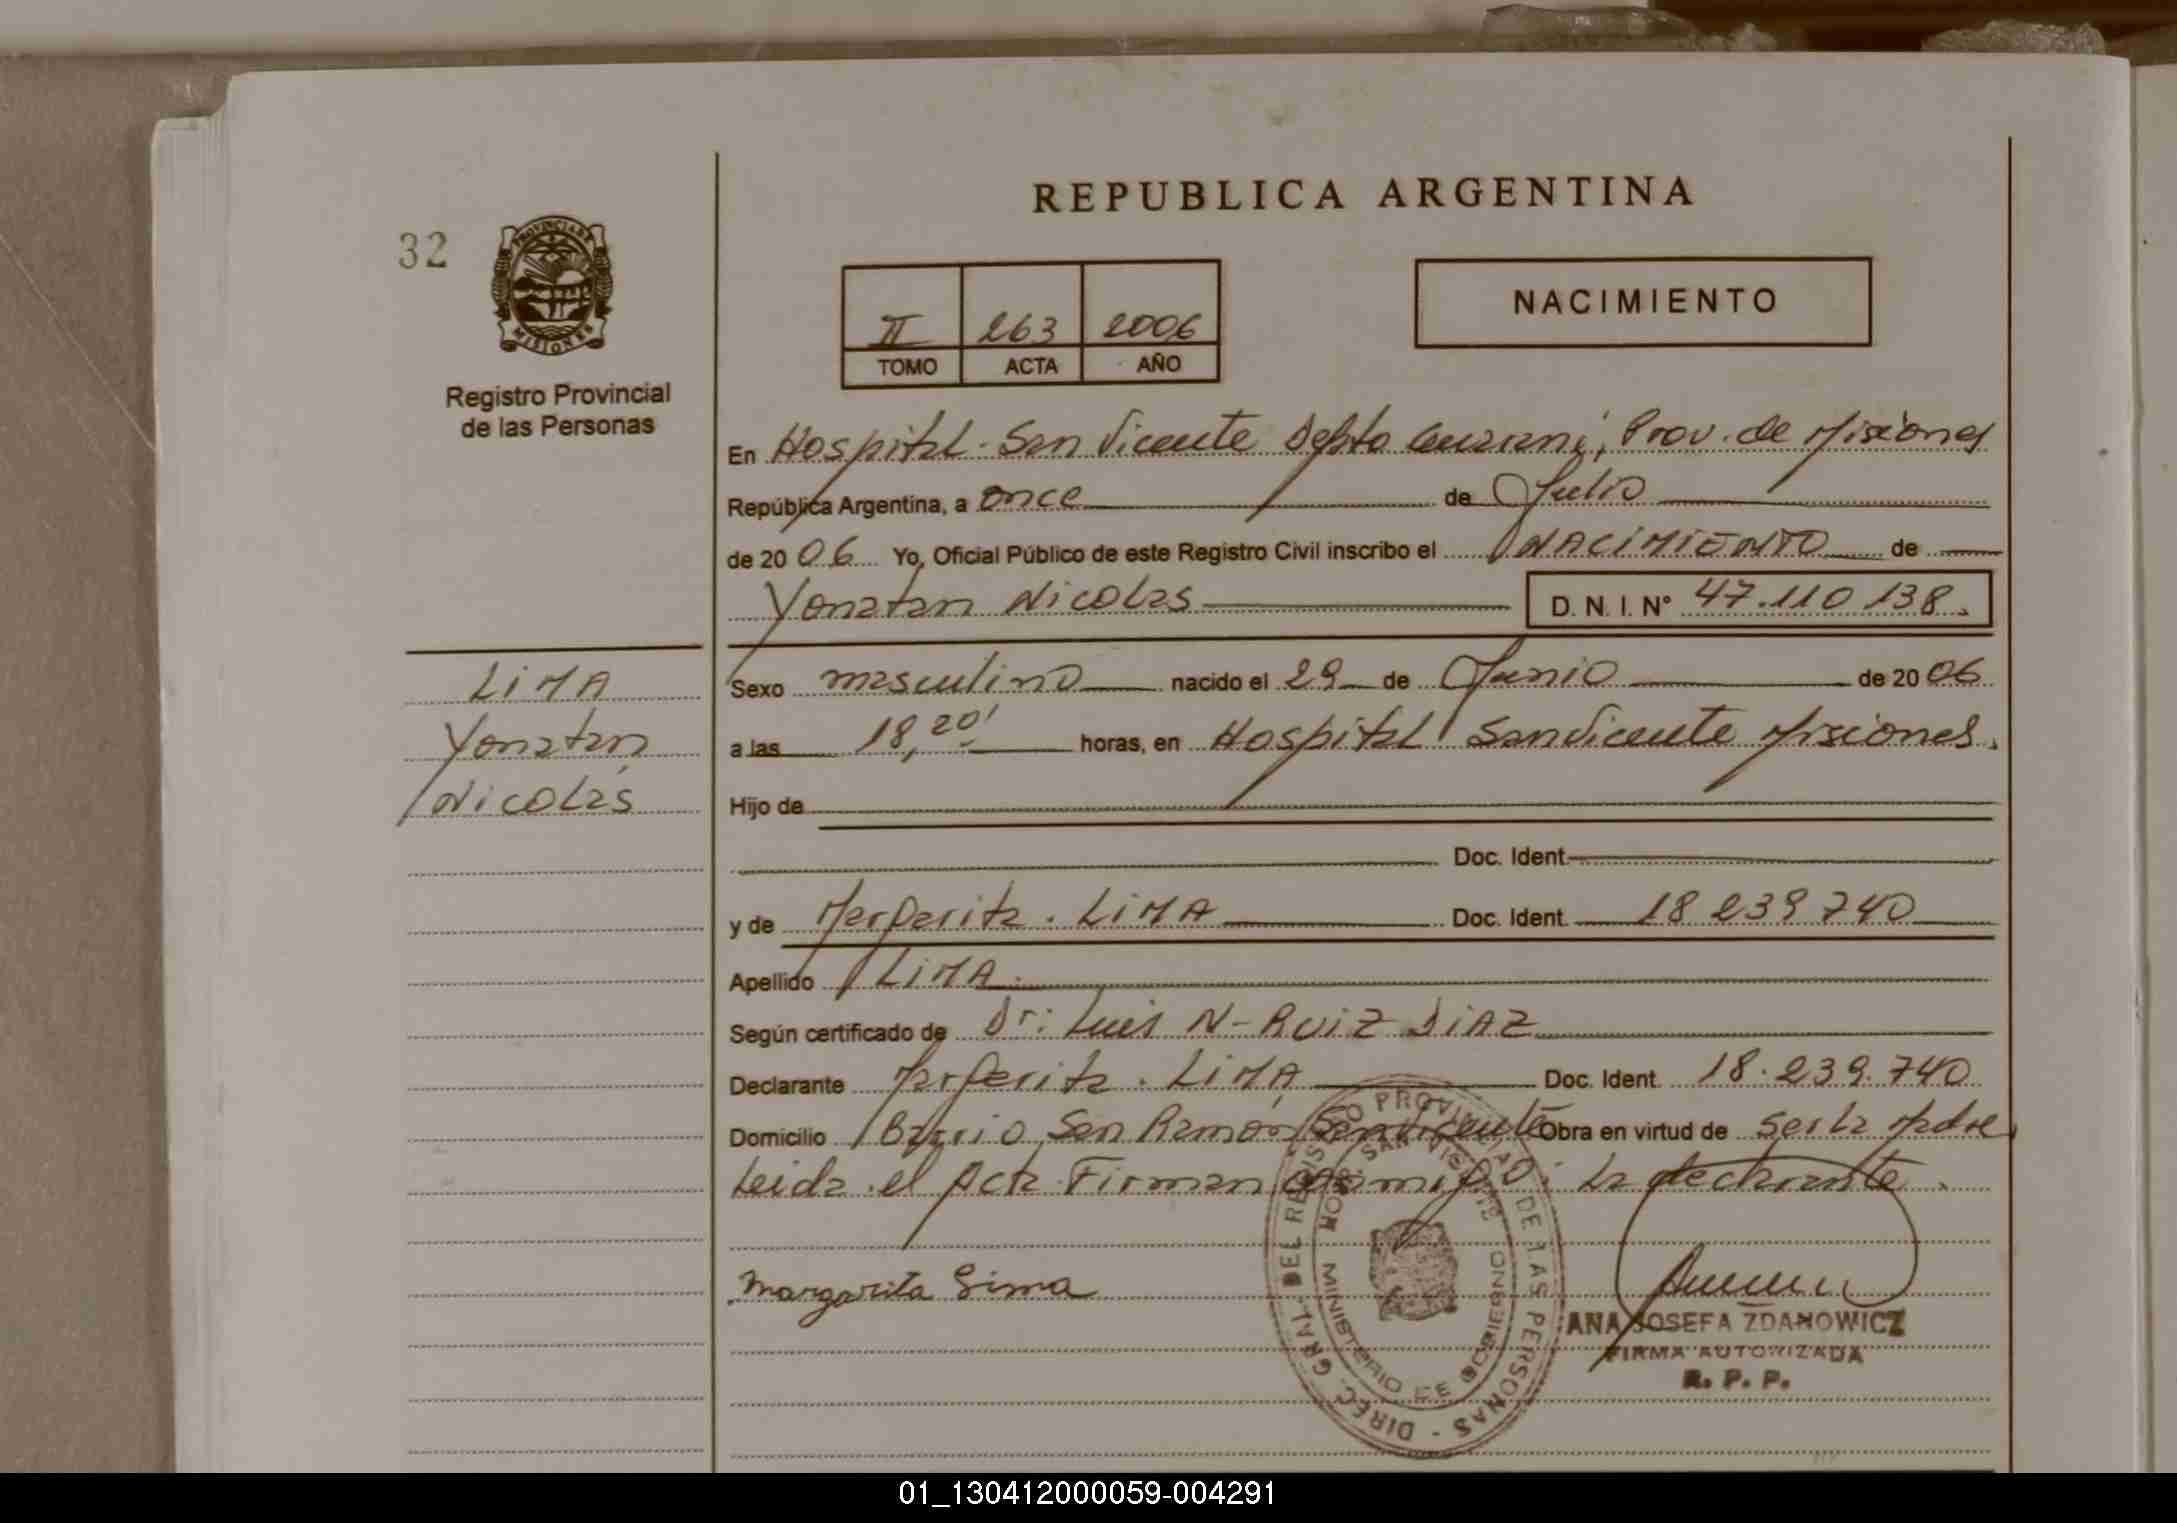 REPUBLICA ARGENTINA
32
PROVINCIA DE
MISIONES
Registro Provincial
de las Personas
II 263 2006
TOMO ACTA AÑO
NACIMIENTO
En Hospital San Vicente Depto Guaraní, Prov. de Misiones
República Argentina, a once de Julio
de 20 06 Yo, Oficial Público de este Registro Civil inscribo el NACIMIENTO de
Yonatan Nicolas D. N. I. N° 47.110 138.
LIMA
Yonatan
Nicolás
Sexo masculino nacido el 29 de Junio de 20 06
a las 18,20' horas, en Hospital San Vicente Misiones.
Hijo de
Doc. Ident.
y de Margarita. LIMA Doc. Ident. 18 239 740
Apellido LIMA.
Según certificado de Dr: Luis N- RUIZ DIAZ
Declarante Margarita. LIMA Doc. Ident. 18.239.740
Domicilio Barrio San Ramón, San Vicente Obra en virtud de ser la Madre
Leida el Acta Firman conmigo: La declarante.
Margarita Lima
DIREC. GRAL. DEL REGISTRO PROVINCIAL DE LAS PERSONAS -
HOSP. SAN VICENTE
MINISTERIO DE GOBIERNO
ANA JOSEFA ZDANOWICZ
FIRMA AUTORIZADA
R. P. P.
01_130412000059-004291